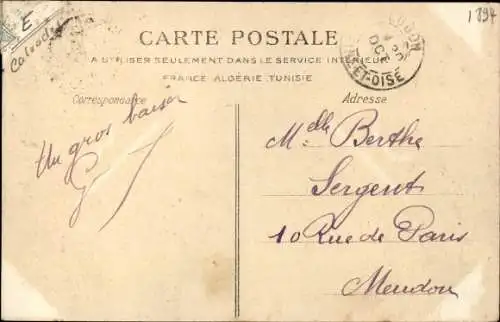 E
Calvados
1894
CARTE POSTALE
A UTILISER SEULEMENT DANS LE SERVICE INTERIEUR
FRANCE-ALGÉRIE-TUNISIE
Correspondance
Adresse
UDON
OCT
ET-OISE
Un gros baiser
G
Melle Berthe
Sergent
10 Rue de Paris
Meudon